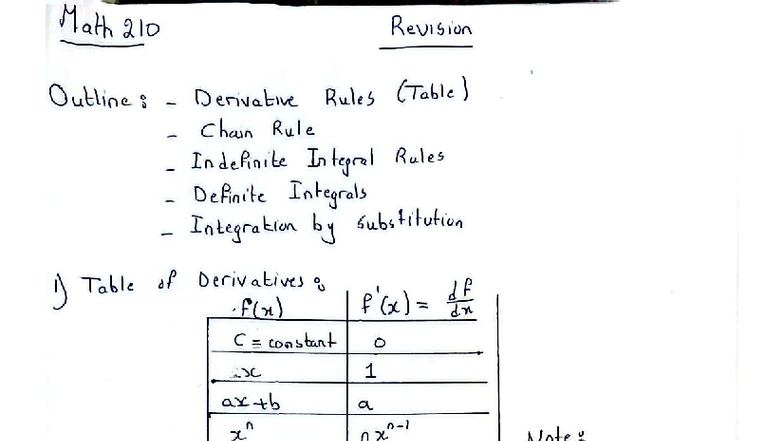 Math 210 Revision
Outline : - Derivative Rules (Table)
- Chain Rule
- Indefinite Integral Rules
- Definite Integrals
- Integration by Substitution
1) Table of Derivatives :
f(x) f'(x) = df/dx
C = constant 0
x 1
ax+b a
xⁿ nxⁿ⁻¹
Note :